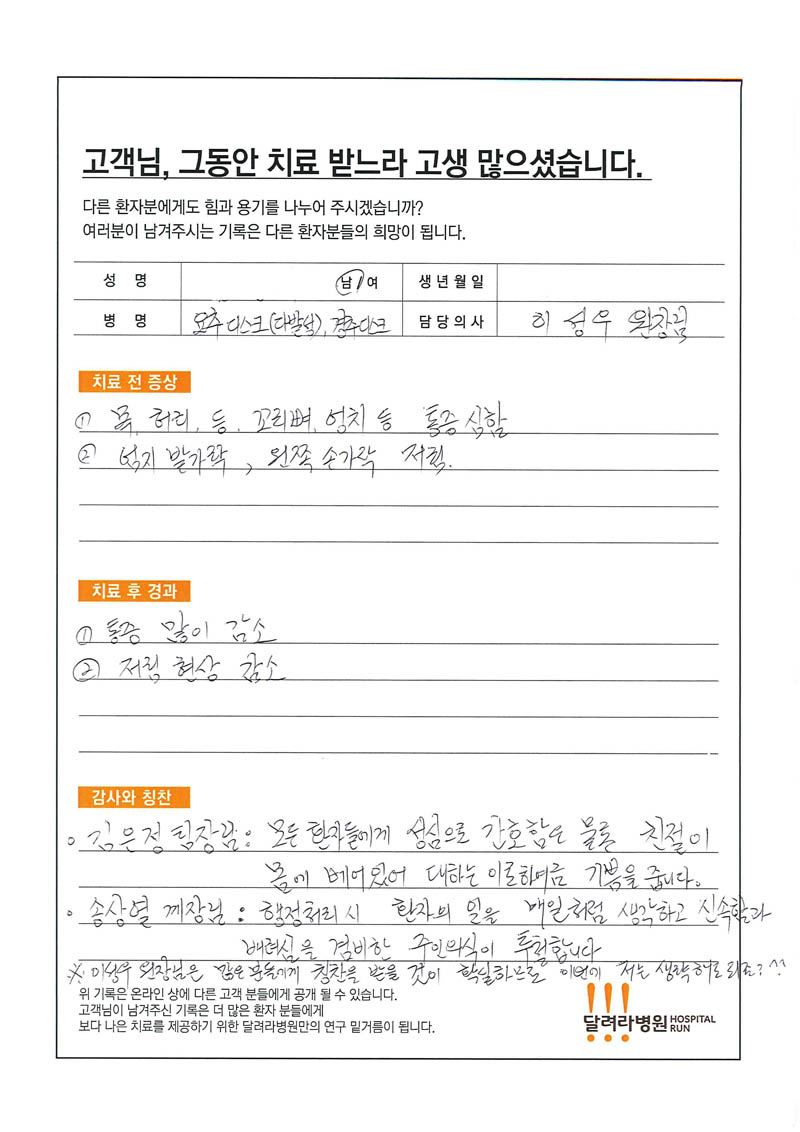 고객님, 그동안 치료 받느라 고생 많으셨습니다.
다른 환자분에게도 힘과 용기를 나누어 주시겠습니까?
여러분이 남겨주시는 기록은 다른 환자분들의 희망이 됩니다.
성 명 남/여 생년월일
병 명 요추디스크(다발성), 경추디스크 담당의사 이성우 원장님
치료 전 증상
① 목, 허리, 등, 꼬리뼈, 엉치 등 통증 심함
② 엄지 발가락, 왼쪽 손가락 저림.
치료 후 경과
① 통증 많이 감소
② 저림 현상 감소
감사와 칭찬
o 김은정 팀장님: 모든 환자들에게 성심으로 간호함은 물론 친절이
몸에 베어있어 대하는 이로하여금 기쁨을 줍니다.
o 송상열 계장님: 행정처리시 환자의 일을 내일처럼 생각하고 신속함과
배려심을 겸비한 주인의식이 투철합니다
※ 이성우 원장님은 많은 분들에게 칭찬을 받을 것이 확실하므로 이번에 저는 생략해도 되죠? ^^
위 기록은 온라인 상에 다른 고객 분들에게 공개 될 수 있습니다.
고객님이 남겨주신 기록은 더 많은 환자 분들에게
보다 나은 치료를 제공하기 위한 달려라병원만의 연구 밑거름이 됩니다.
달려라병원 HOSPITAL RUN